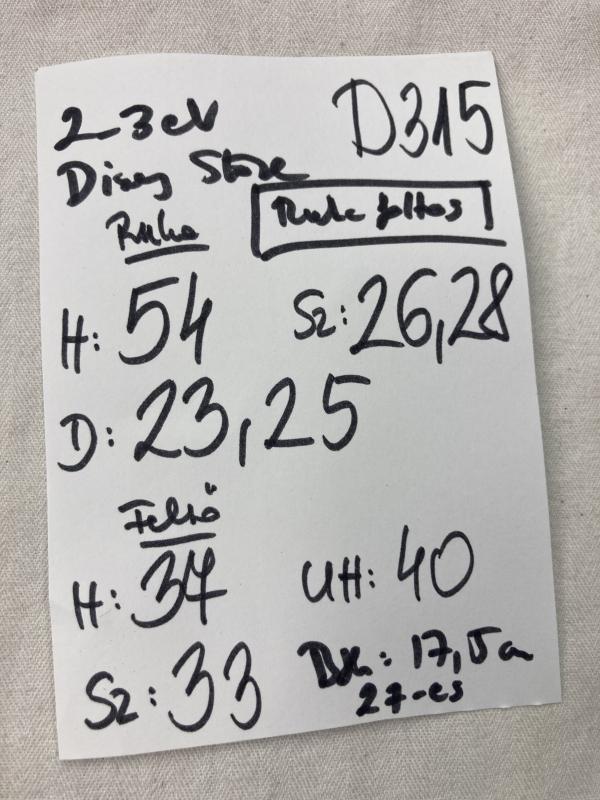 2-3 év D315
Disney Store
Ruha Ruha foltos
H: 54 Sz: 26,28
D: 23,25
Felső
H: 37 UH: 40
Sz: 33 BH: 17,5 cm
27-es